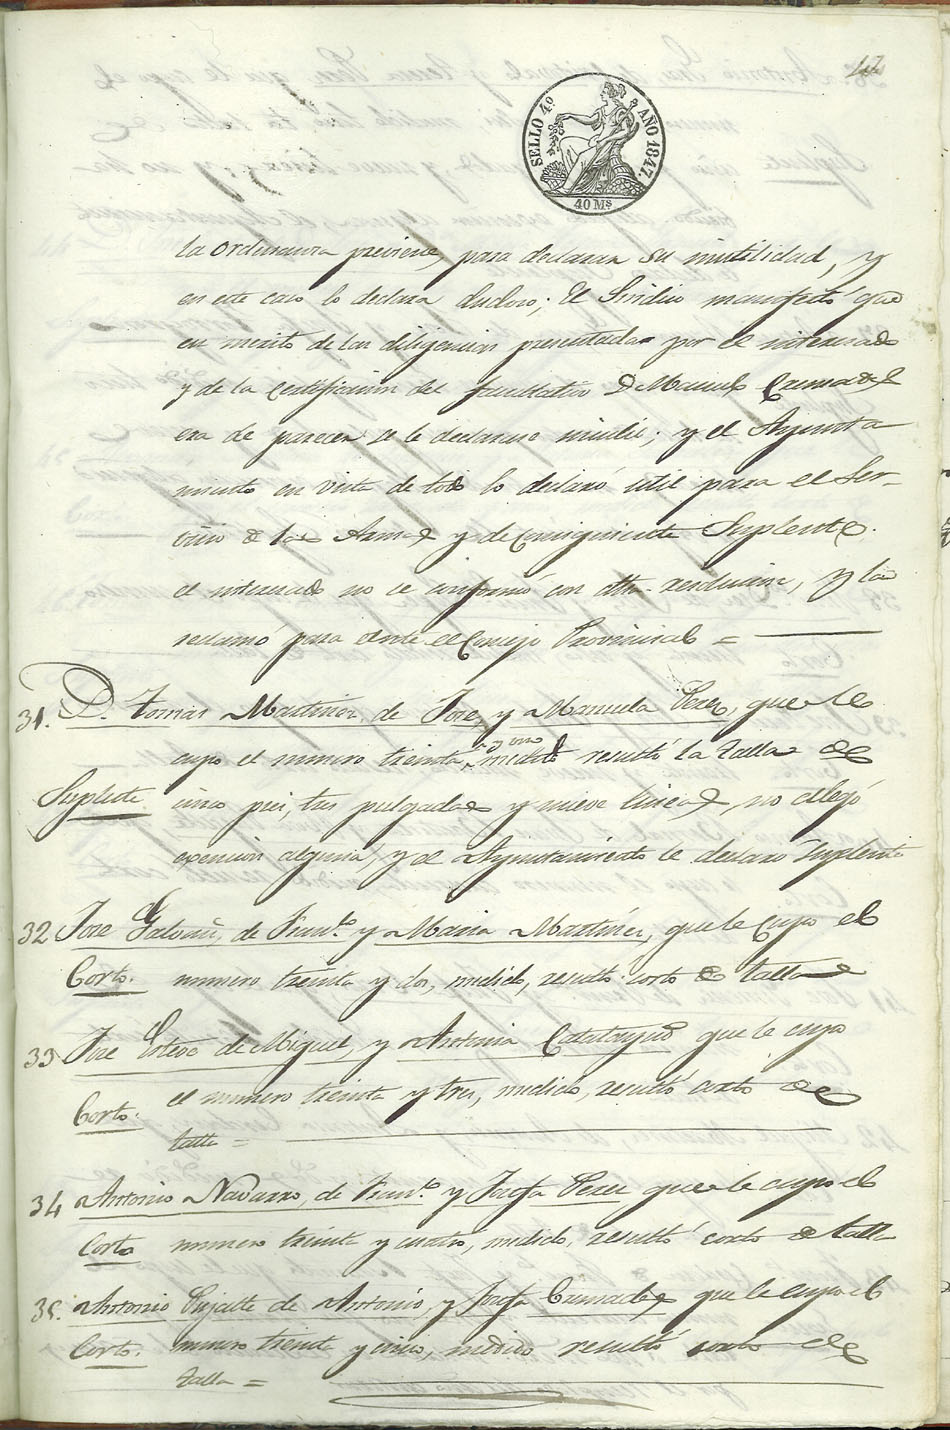 42
SELLO 4º AÑO 1847.
40 Ms
la ordenanza previene, para declarar su inutilidad, y
en este caso lo declara dudoso; El Sindico manifestó que
en merito de las diligencias presentadas por el interesado
y de la certificacion del facultativo D. Manuel Cremades
era de parecer se le declarase inutil; y el Ayunta
miento en vista de todo lo declaró util para el Ser-
vicio de las Armas y de consiguiente Suplente.
el interesado no se conformó con dha. resolucion, y la
reclamó para ante el Consejo Provincial =
31. D. Tomas Martinez de Jose, y Manuela Perez, que le
cupo el numero treinta y uno medido resultó la talla de
Suplente cinco pies, tres pulgadas y nueve lineas, no alegó
exencion alguna, y el Ayuntamiento le declaró Suplente
32 Jose Galvañ, de Franco. y Maria Martinez, que le cupo el
Corto. numero treinta y dos, medido, resultó corto de talla
33 Jose Esteve de Miguel, y Antonia Calatayud que le cupo
Corto. el numero treinta y tres, medido, resultó corto de
talla =
34 Antonio Navarro, de Franco. y Josefa Perez que le cupo el
Corto numero treinta y cuatro, medido, resultó corto de talla
35. Antonio Pujalte de Antonio, y Josefa Cremades que le cupo el
Corto. numero treinta y cinco, medido resultó corto de
talla =